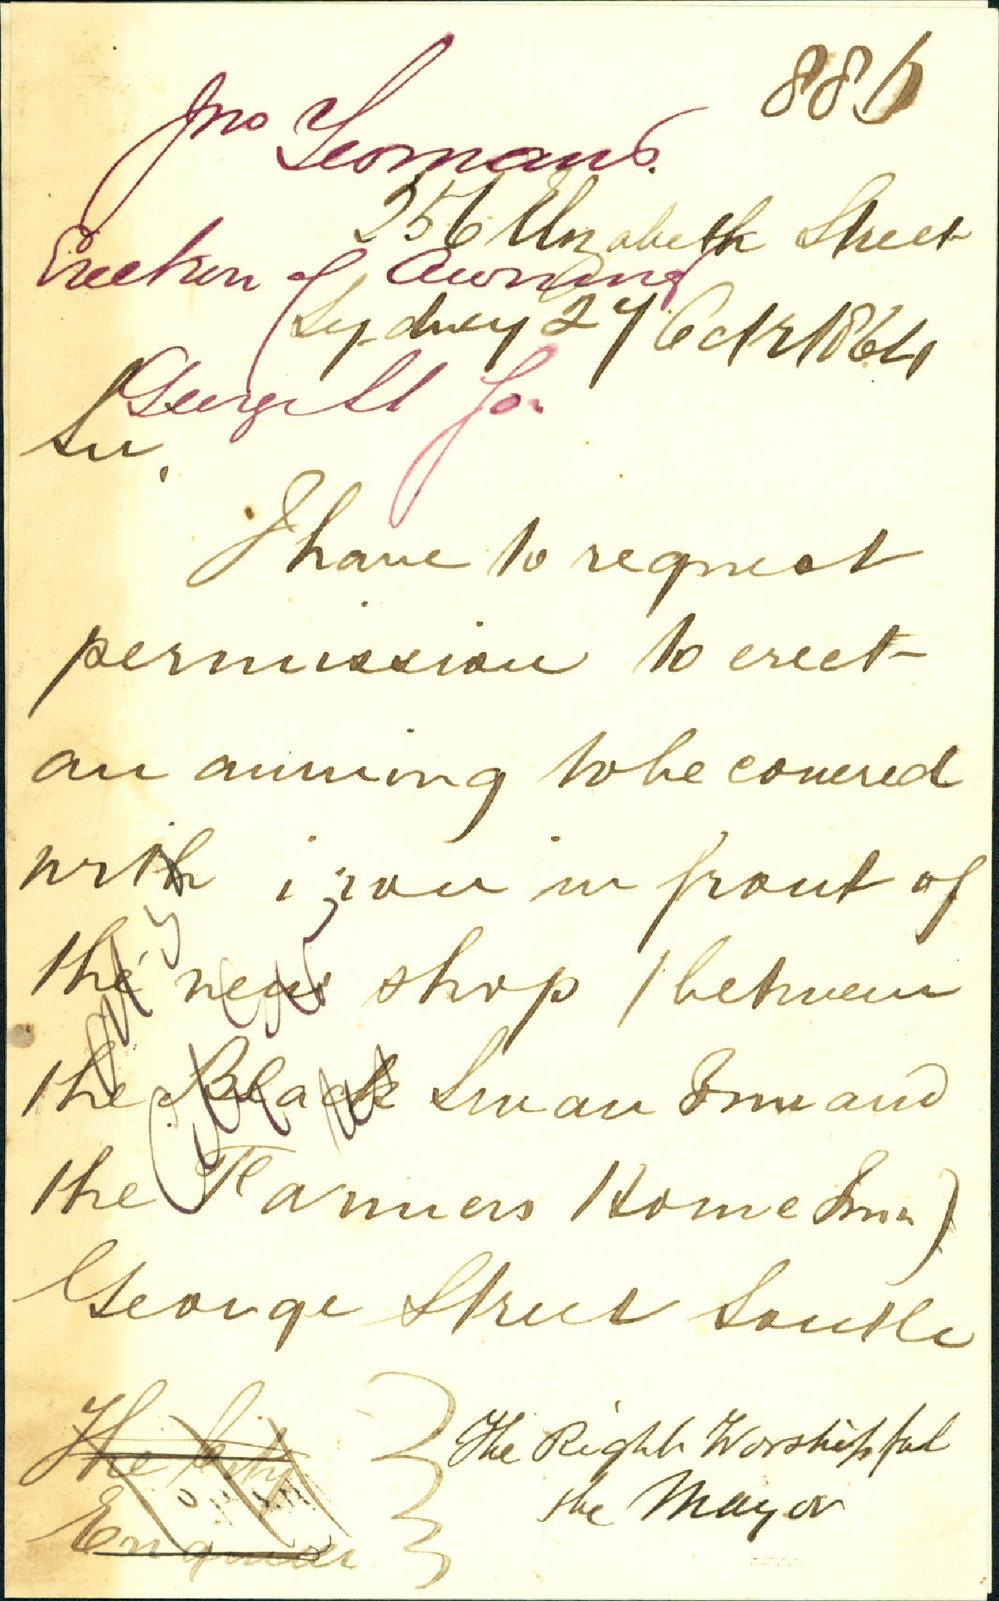 886
Jno Yeomans.
256 Elizabeth Street
Erection of Awning
Sydney 27 Octr 1864
George St So.
Sir,
I have to request
permission to erect
an awning to be covered
with iron in front of
the new shop (between
the Black Swan Inn and
the Farmers Home Inn)
George Street South
The City
Engineer
The Right Worshipful
the Mayor